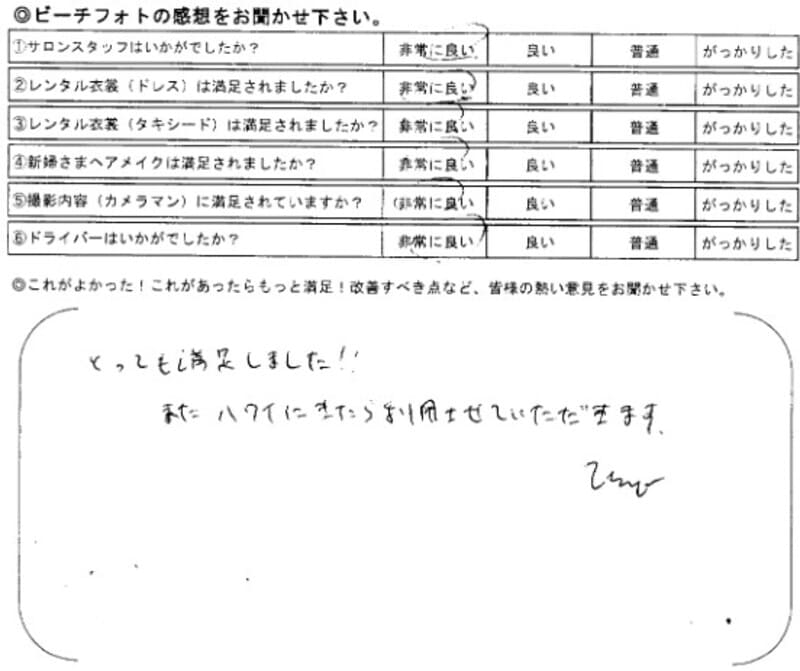 ◎ビーチフォトの感想をお聞かせ下さい。
①サロンスタッフはいかがでしたか？ 非常に良い 良い 普通 がっかりした
②レンタル衣裳（ドレス）は満足されましたか？ 非常に良い 良い 普通 がっかりした
③レンタル衣裳（タキシード）は満足されましたか？ 非常に良い 良い 普通 がっかりした
④新婦さまヘアメイクは満足されましたか？ 非常に良い 良い 普通 がっかりした
⑤撮影内容（カメラマン）に満足されていますか？ 非常に良い 良い 普通 がっかりした
⑥ドライバーはいかがでしたか？ 非常に良い 良い 普通 がっかりした
◎これがよかった！これがあったらもっと満足！改善すべき点など、皆様の熱い意見をお聞かせ下さい。
とっても満足しました!!
また ハワイにきたら利用させていただきます。